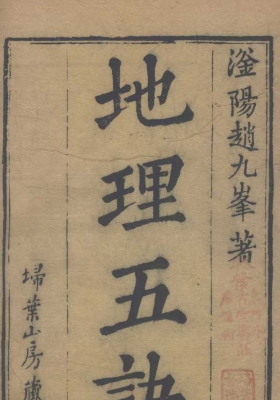 滏陽趙九峯著
地理五訣
掃葉山房藏